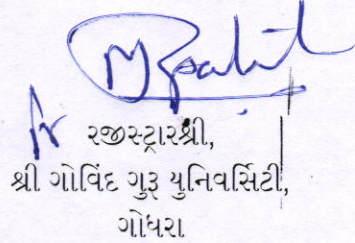 રજીસ્ટ્રારશ્રી,
શ્રી ગોવિંદ ગુરૂ યુનિવર્સિટી,
ગોધરા